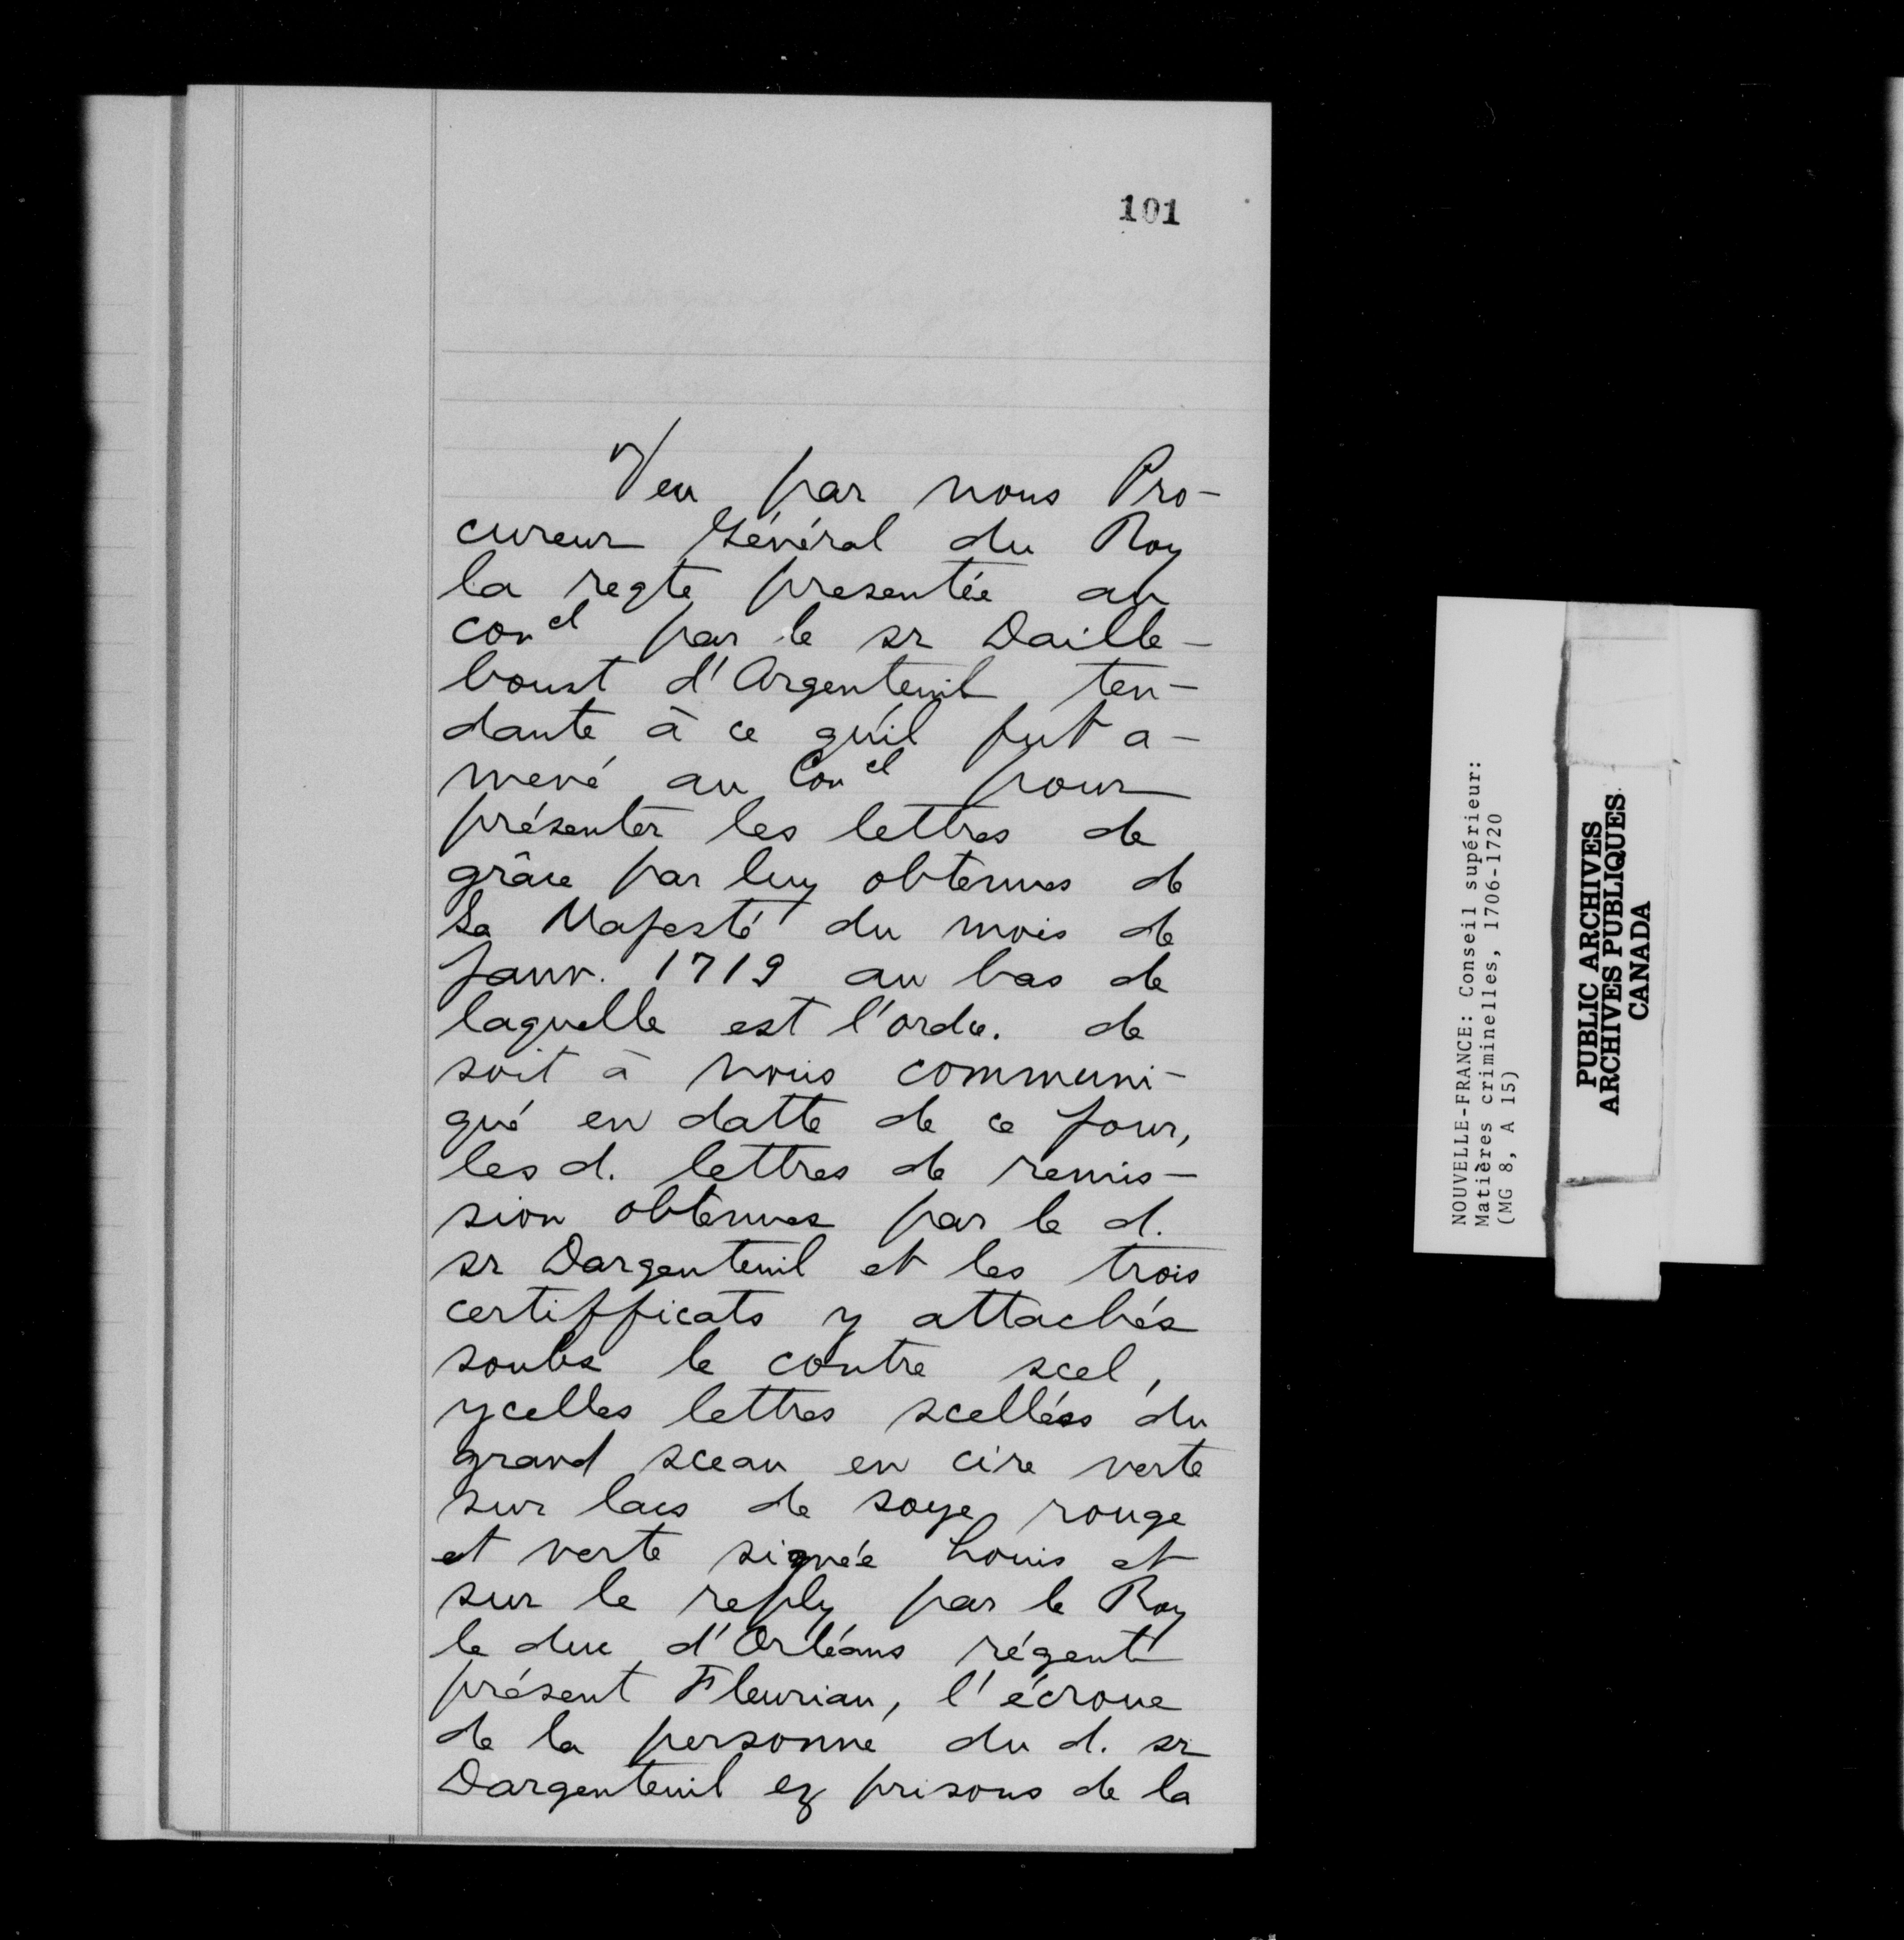 101
Veu par nous Pro-
cureur Général du Roy
la reqte presentée au
conel par le sr Daille-
boust d'Argenteuil ten-
dante à ce qu'il fut a-
mené au Conel pour
présenter les lettres de
grâce par luy obtenues de
Sa Majesté du mois de
janv. 1719 au bas de
laquelle est l'ordce. de
soit à nous communi-
qué en datte de ce jour,
les d. lettres de remis-
sion obtenues par le d.
sr Dargenteuil et les trois
certifficats y attachés
soubs le contre scel,
ycelles lettres scellées du
grand sceau en cire verte
sur lacs de soye rouge
et verte signée Louis et
sur le reply par le Roy
le duc d'Orléans régent
présent Fleuriau, l'écroue
de la personne du d. sr
Dargenteuil ez prisons de la
NOUVELLE-FRANCE: Conseil supérieur:
Matières criminelles, 1706-1720
(MG 8, A 15)
PUBLIC ARCHIVES
ARCHIVES PUBLIQUES
CANADA